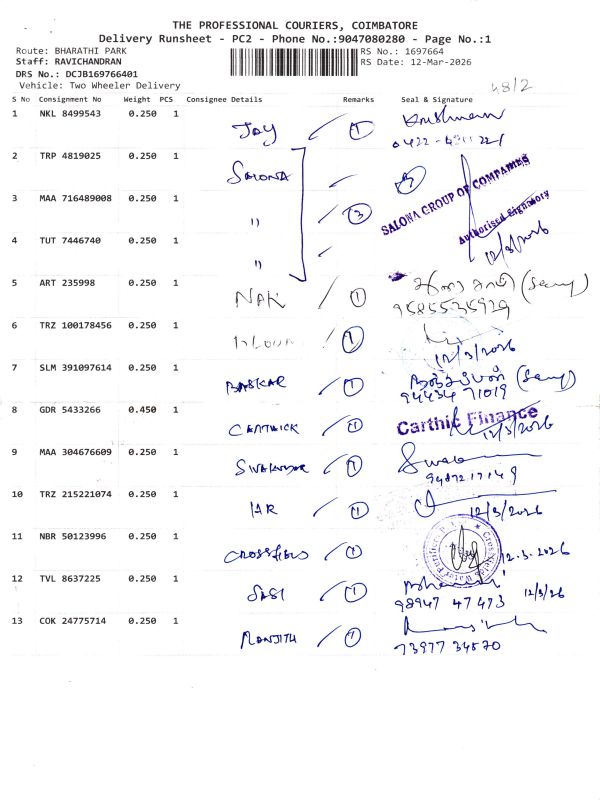 THE PROFESSIONAL COURIERS, COIMBATORE
Delivery Runsheet - PC2 - Phone No.:9047080280 - Page No.:1
Route: BHARATHI PARK RS No.: 1697664
Staff: RAVICHANDRAN RS Date: 12-Mar-2026
DRS No.: DCJB169766401
Vehicle: Two Wheeler Delivery 48/2
S No Consignment No Weight PCS Consignee Details Remarks Seal & Signature
1 NKL 8499543 0.250 1 JAY 1
2 TRP 4819025 0.250 1 SALONA
SALONA GROUP OF COMPANIES
3 MAA 716489008 0.250 1 " 3
Authorised Signatory
4 TUT 7446740 0.250 1 " 12/3/2026
5 ART 235998 0.250 1 NAK 1 (Samy)
9585535929
6 TRZ 100178456 0.250 1 1
12/3/2026
7 SLM 391097614 0.250 1 BASKAR 1 (Samy)
94434 71019
8 GDR 5433266 0.450 1 1 Carthic Finance
12/3/2026
9 MAA 304676609 0.250 1 1
10 TRZ 215221074 0.250 1 IAR 1 12/3/2026
11 NBR 50123996 0.250 1 1 12.3.2026
12 TVL 8637225 0.250 1 SASI 1 12/3/26
98947 47473
13 COK 24775714 0.250 1 RANJITH 1
73977 34570